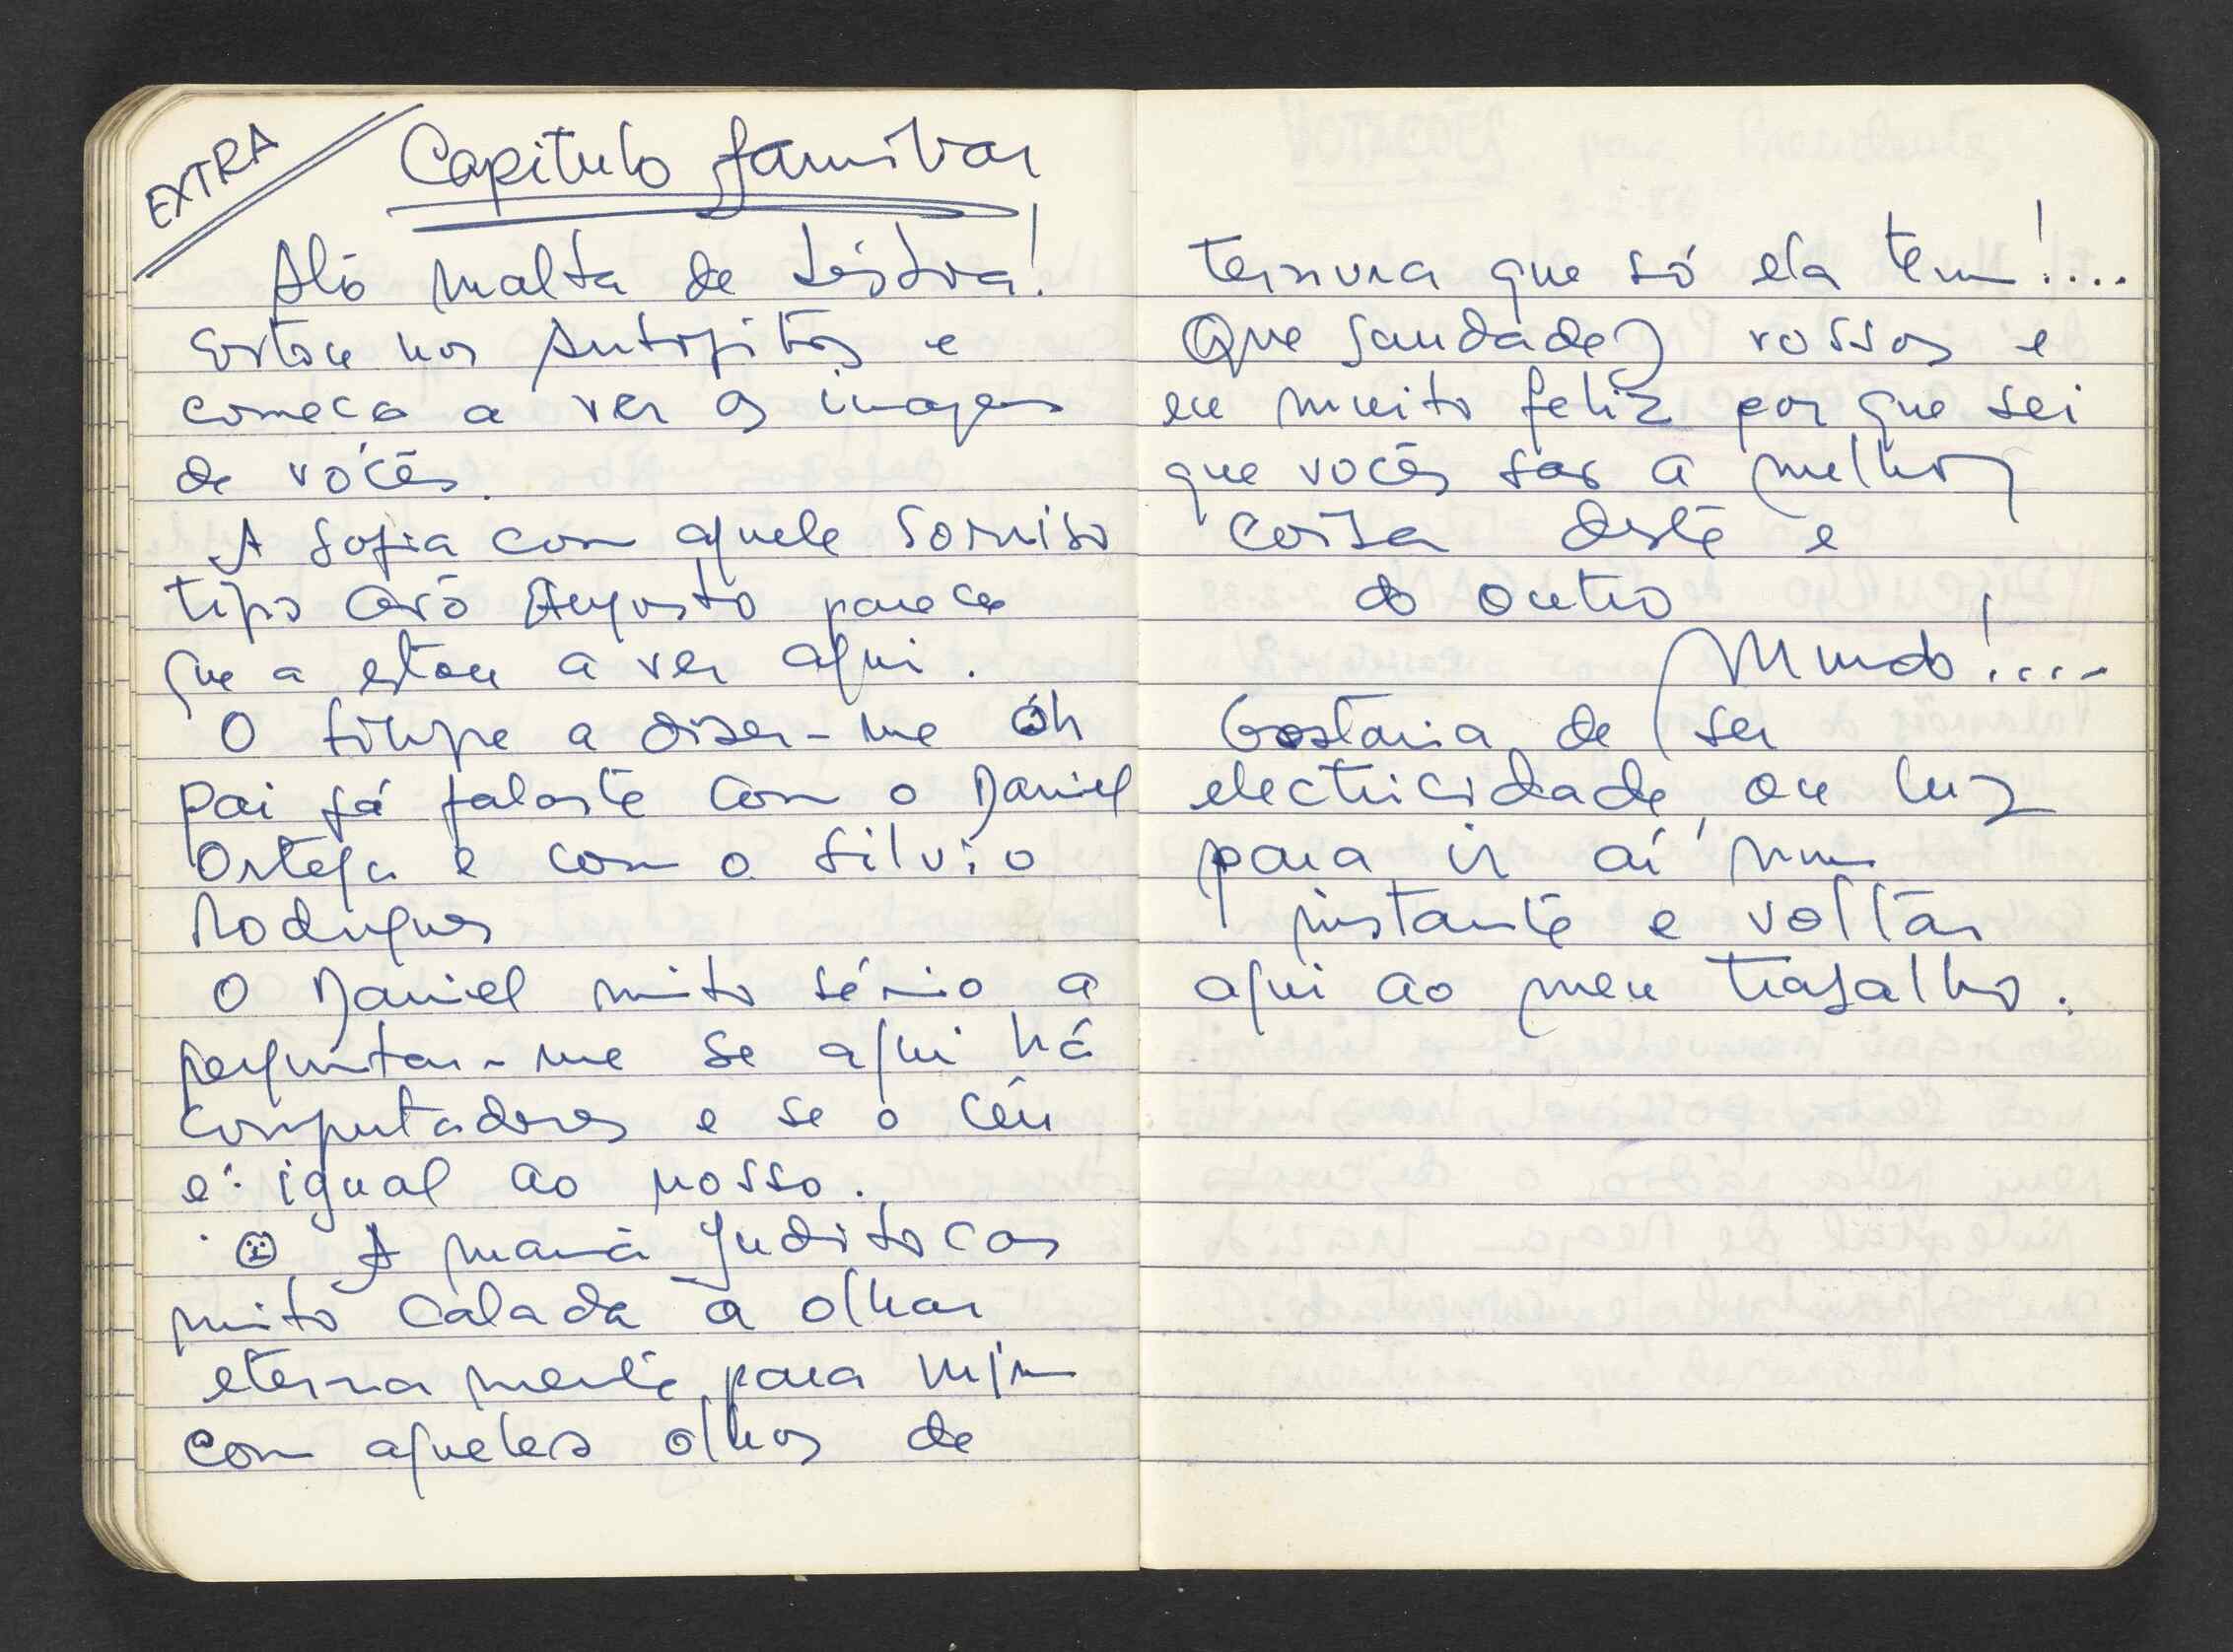 EXTRA
Capitulo familiar
Alô malta de Lisboa!
Estou nos Antípodas e
começo a ver as imagens
de vocês.
A Sofia com aquele sorriso
tipo avô Augusto parece
que a estou a ver aqui.
O Filipe a dizer-me óh
pai já falaste com o Daniel
Ortega e com o Silvio
Rodrigues
O Daniel muito sério a
perguntar-me se aqui há
computadores e se o céu
é igual ao nosso.
A mamã Juditocas
muito calada a olhar
eternamente para mim
com aqueles olhos de
ternura que só ela tem!....
Que saudades vossas e
eu muito feliz por que sei
que vocês são a melhor
coisa deste e
do outro
Mundo!....
Gostaria de ser
electricidade, ou luz
para ir aí num
instante e voltar
aqui ao meu trabalho.